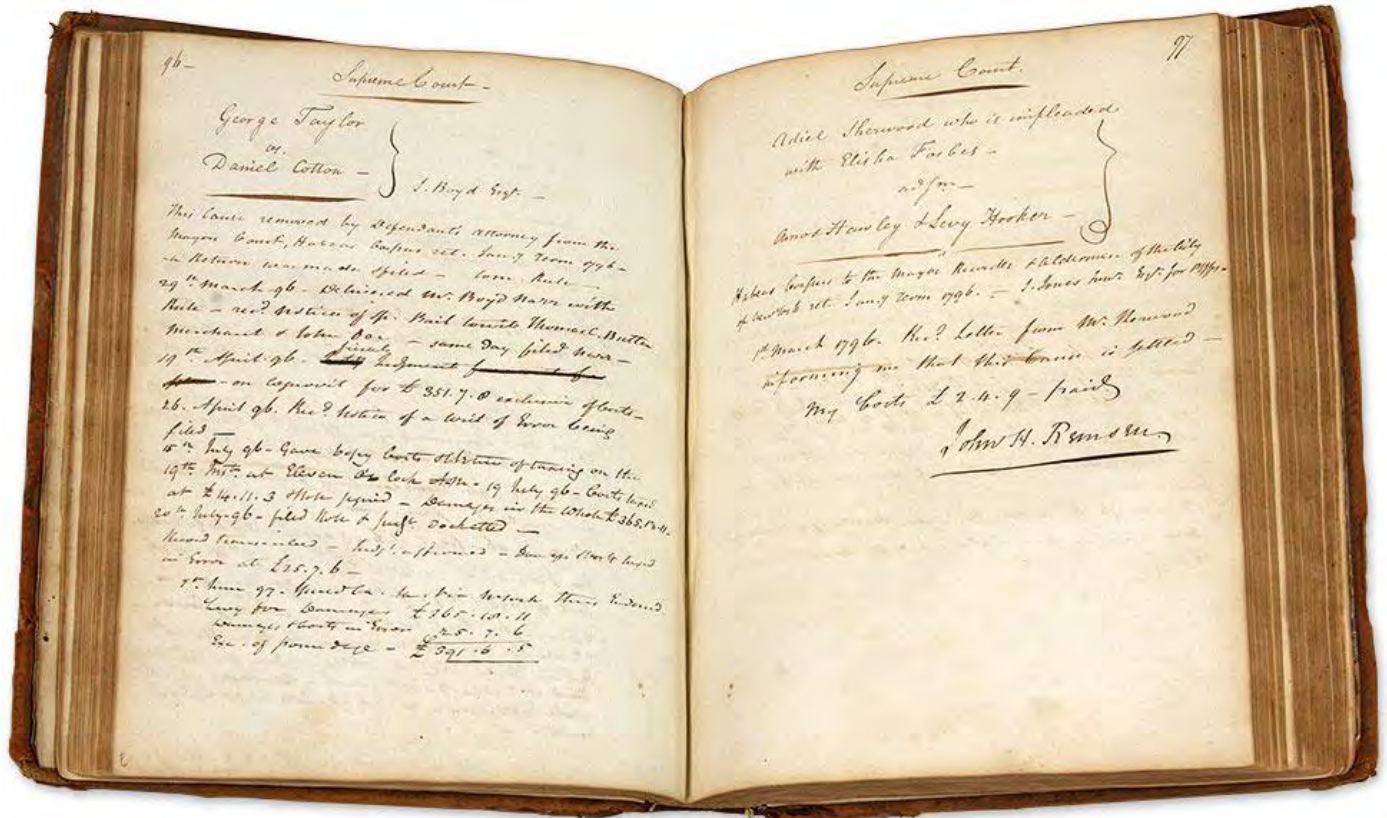 96-
Supreme Court -
George Taylor
vs.
Daniel Cotton -
S. Boyd Esqr. -
This Cause removed by Defendants Attorney from the
Mayors Court, Habeas Corpus ret. Jany Term 1796 -
a Return was made & filed - com. Rule -
29th March 96 - Delivered Mr. Boyd Narr with
Rule - recd Notice of sp. Bail to wit Thomas C. Butler
Merchant & John Doe - same Day filed Narr -
19th April 96 - Judgment
- on cognovit for £351.7.8 exclusive of Costs -
26. April 96. Recd Notice of a Writ of Error being
filed -
15th July 96 - Gave Copy Costs & Notice of taxing on the
19th Inst. at Eleven O Clock AM - 19 July 96 - Costs taxed
at £14.11.3 & Roll signed - Damages in the Whole £365.18.11.
20th July 96 - filed Roll & Judgt. docketted -
Record transcribed - Judgt. affirmed - Damages & Costs taxed
in Error at £25.7.6 -
7th June 97. Issued Ca. Sa. thus Endorsed
Levy for Damages £365.18.11
Damages & Costs in Error 25.7.6
Exc. of poundage - £391.6.5
97
Supreme Court.
Adiel Sherwood who is impleaded
with Elisha Forbes -
adsm -
Amos Hawley & Levy Hooker -
Habeas Corpus to the Mayor Recorder & Aldermen of the City
of New York ret. Jany Term 1796. - S. Jones Junr. Esqr. for Plffs -
1st March 1796. Recd Letter from Mr. Sherwood
informing me that this Cause is settled -
My Costs £2.4.9 - paid
John H. Remsen.